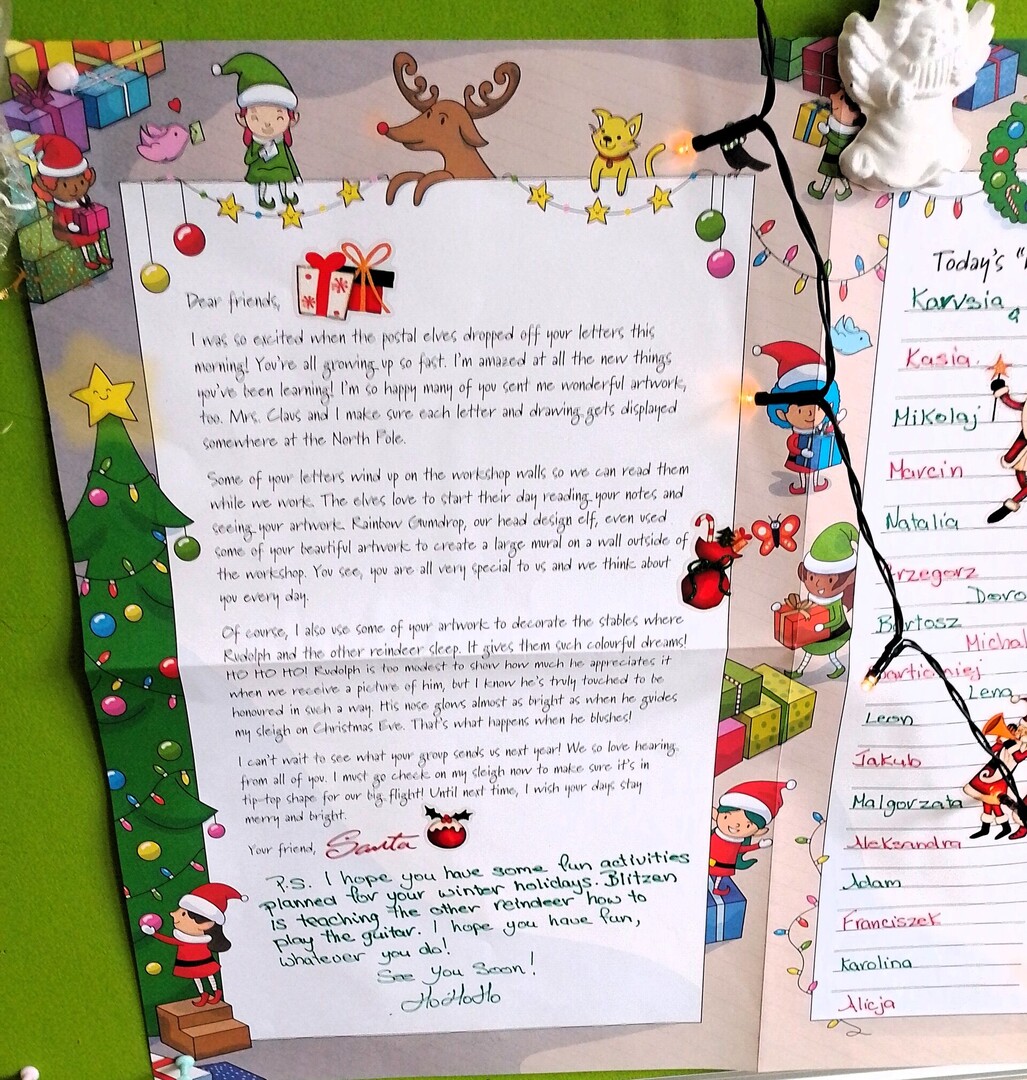 Dear friends,
I was so excited when the postal elves dropped off your letters this
morning! You're all growing up so fast. I'm amazed at all the new things
you've been learning! I'm so happy many of you sent me wonderful artwork,
too. Mrs. Claus and I make sure each letter and drawing gets displayed
somewhere at the North Pole.
Some of your letters wind up on the workshop walls so we can read them
while we work. The elves love to start their day reading your notes and
seeing your artwork. Rainbow Gumdrop, our head design elf, even used
some of your beautiful artwork to create a large mural on a wall outside of
the workshop. You see, you are all very special to us and we think about
you every day.
Of course, I also use some of your artwork to decorate the stables where
Rudolph and the other reindeer sleep. It gives them such colourful dreams!
HO HO HO! Rudolph is too modest to show how much he appreciates it
when we receive a picture of him, but I know he's truly touched to be
honoured in such a way. His nose glows almost as bright as when he guides
my sleigh on Christmas Eve. That's what happens when he blushes!
I can't wait to see what your group sends us next year! We so love hearing
from all of you. I must go check on my sleigh now to make sure it's in
tip-top shape for our big flight! Until next time, I wish your days stay
merry and bright.
Your friend, Santa
P.S. I hope you have some fun activities
planned for your winter holidays. Blitzen
is teaching the other reindeer how to
play the guitar. I hope you have fun,
whatever you do!
See You Soon!
HoHoHo
Today's
Karysia
Kasia
Mikolaj
Marcin
Natalia
Grzegorz
Bartosz
Lena
Leon
Jakub
Malgorzata
Aleksandra
Adam
Franciszek
Karolina
Alicja